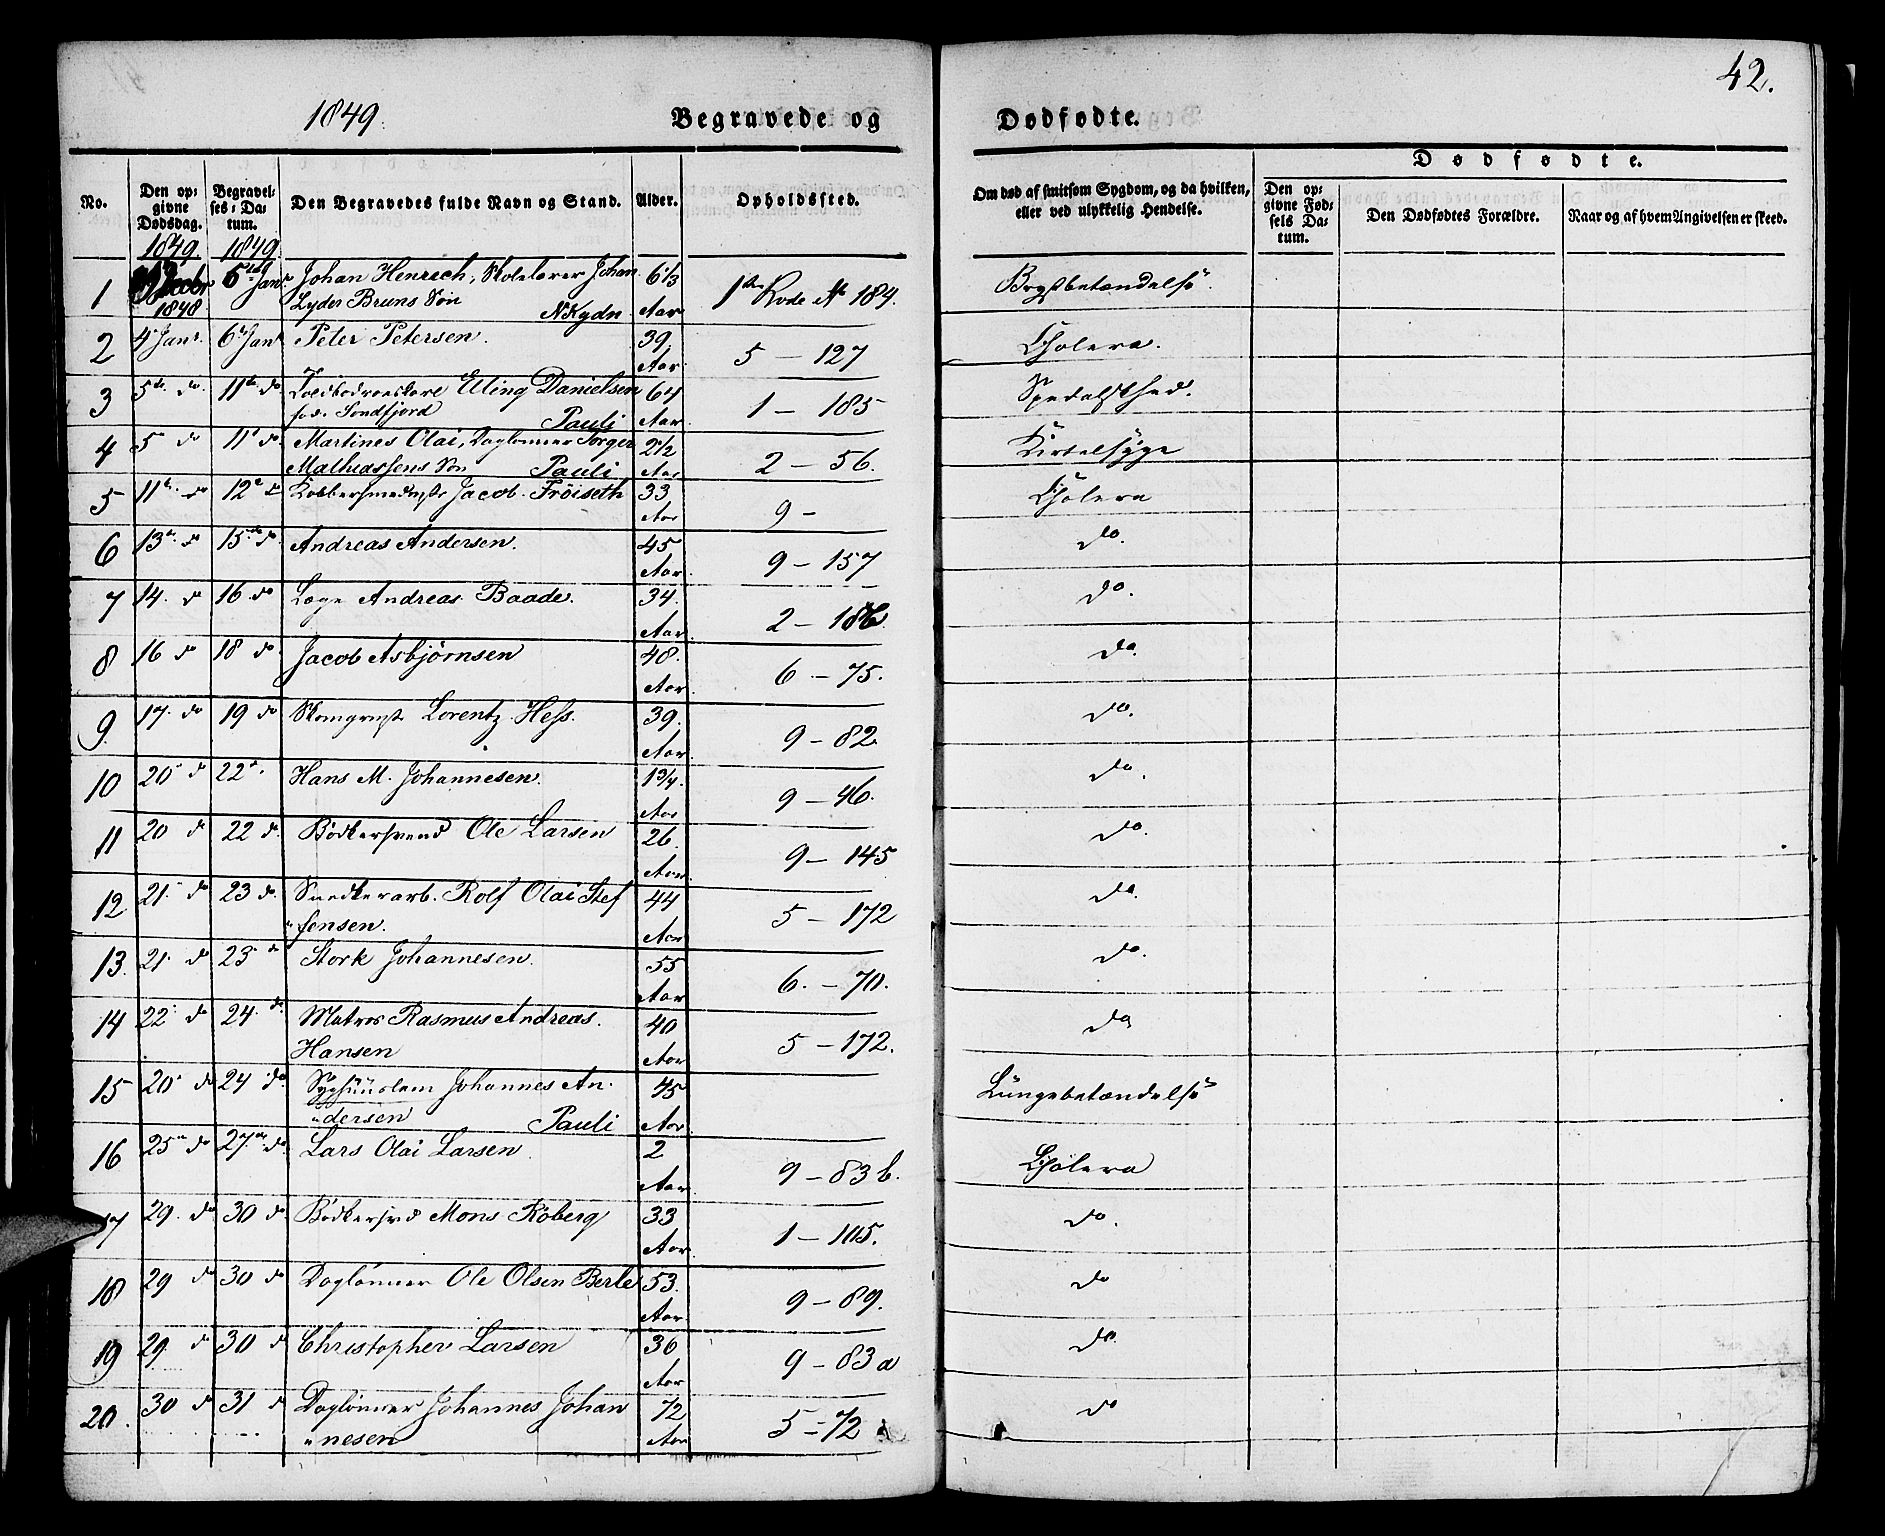 42.
1849. Begravede og Dødfødte.
No. Den opgivne Dødsdag. Begravelses-Datum. Den Begravedes fulde Navn og Stand. Alder. Opholdssted. Om død af smitsom Sygdom, og da hvilken, eller ved ulykkelig Hendelse. Dødfødte.
Den opgivne Fødsels Datum. Den Dødfødtes Forældre. Naar og af hvem Angivelsen er skeed.
1849. 1849.
1 Decbr 1848 5 Janr Johan Henrich, Skolelærer Johan 6 1/3 Aar 1ste Rode No 184. Brystbetændelse.
Lyder Bruns Søn NKydn
2 4 Janr. 6 Janr Peter Petersen. 39. Aar 5 - 127 Cholera.
3 5te do. 11te do Elling Danielsen 64 Aar 1 - 185 Spedalskhed.
fød. Søndfjord Pauli
4 5 do 11 do. Martines Olai, Daglønner Torger 2 1/2 Aar 2 - 56. Kirtelsyge
Mathiassens Søn Pauli
5 11te do 12te do Kobbersmedmstr Jacob Frøiseth 33 Aar 9 - Cholera
6 13de do 15de do Andreas Andersen. 45 Aar 9 - 157 do.
7 14. do 16 do Læge Andreas Baade. 34. Aar 2 - 186 do.
8 16 do 18 do. Jacob Asbjørnsen 48. Aar. 6 - 75. do.
9. 17. do 19 do Skomgrmstr Lorentz Hess. 39. Aar. 9 - 82. do.
10 20 do 22 Hans M. Johannesen. 1 3/4. Aar 9 - 46. do.
11 20 do 22 do. Bødkersvend Ole Larsen 26. Aar. 9 - 145 do.
12 21. do 23 do. Snedkerarb. Rolf Olai Stef 44 Aar 5 - 172 do.
"fensen.
13. 21. do 23 do Stork Johannesen. 55 Aar 6. - 70. do.
14 22 do 24. do. Matros Rasmus Andreas. 40 Aar 5 - 172. do
Hansen
15 20 do 24 do. Sygehuuslem Johannes An. 45 Aar. Lungebetændelse
"dersen Pauli
16 25 do 27 do. Lars Olai Larsen. 2 Aar. 9 - 83 b. Cholera
17 29. do 30 do. Bødkersvd Mons Roberg 33 Aar. 1 - 105. do.
18 29 do 30 do Daglønner Ole Olsen Berle 53. Aar. 9 - 89. do
19 29. do 30 do Christopher Larsen 36 Aar 9 - 83 a do.
20. 30 do 31 do Daglønner Johannes Johan 72 Aar 5 - 72 do
"nesen